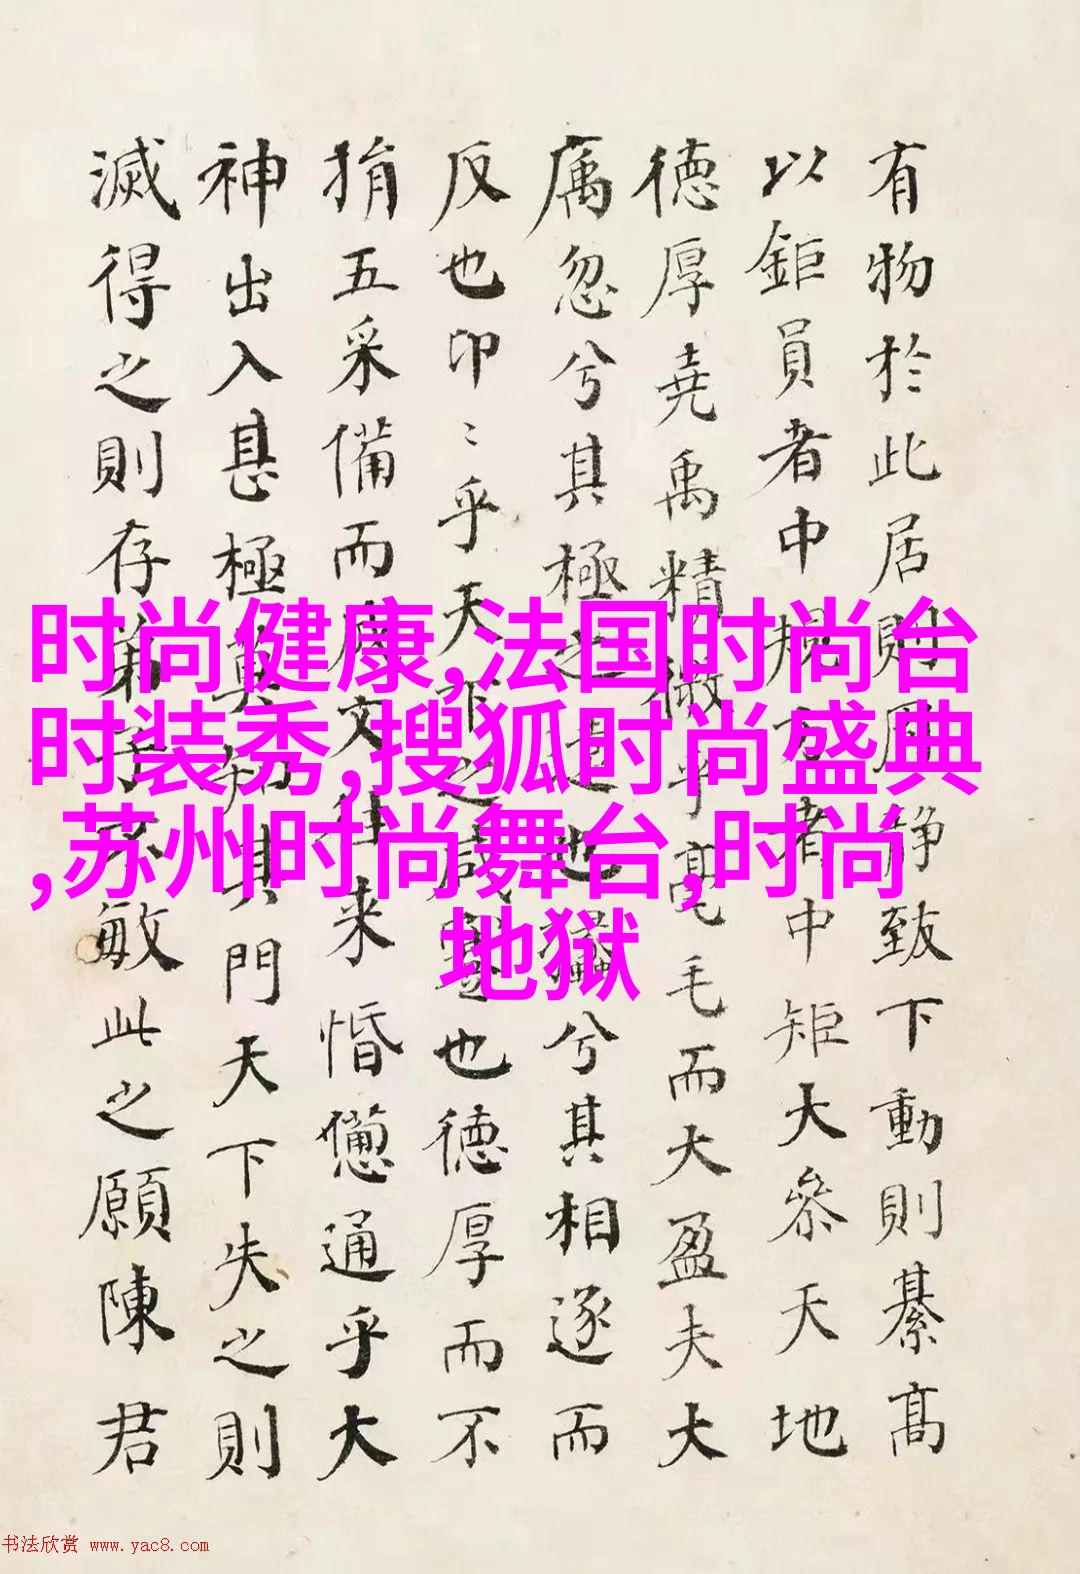 有物於此居則周静致下動則綦高
以鉅員者中規方者中矩大參天地
德厚堯禹精微乎毫毛而大盈夫大
忽兮其極之遠也兮其相逐而
反也卬〻乎天下之咸蹇也德厚而不
捐五采備而成文往來惛憊通乎大
神出入甚極莫知其門天下失之則
滅得之則存弟子不敏此之願陳君
时尚健康,法国时尚台
时装秀,搜狐时尚盛典
,苏州时尚舞台,时尚
地狱
书法欣赏 www.yac8.com